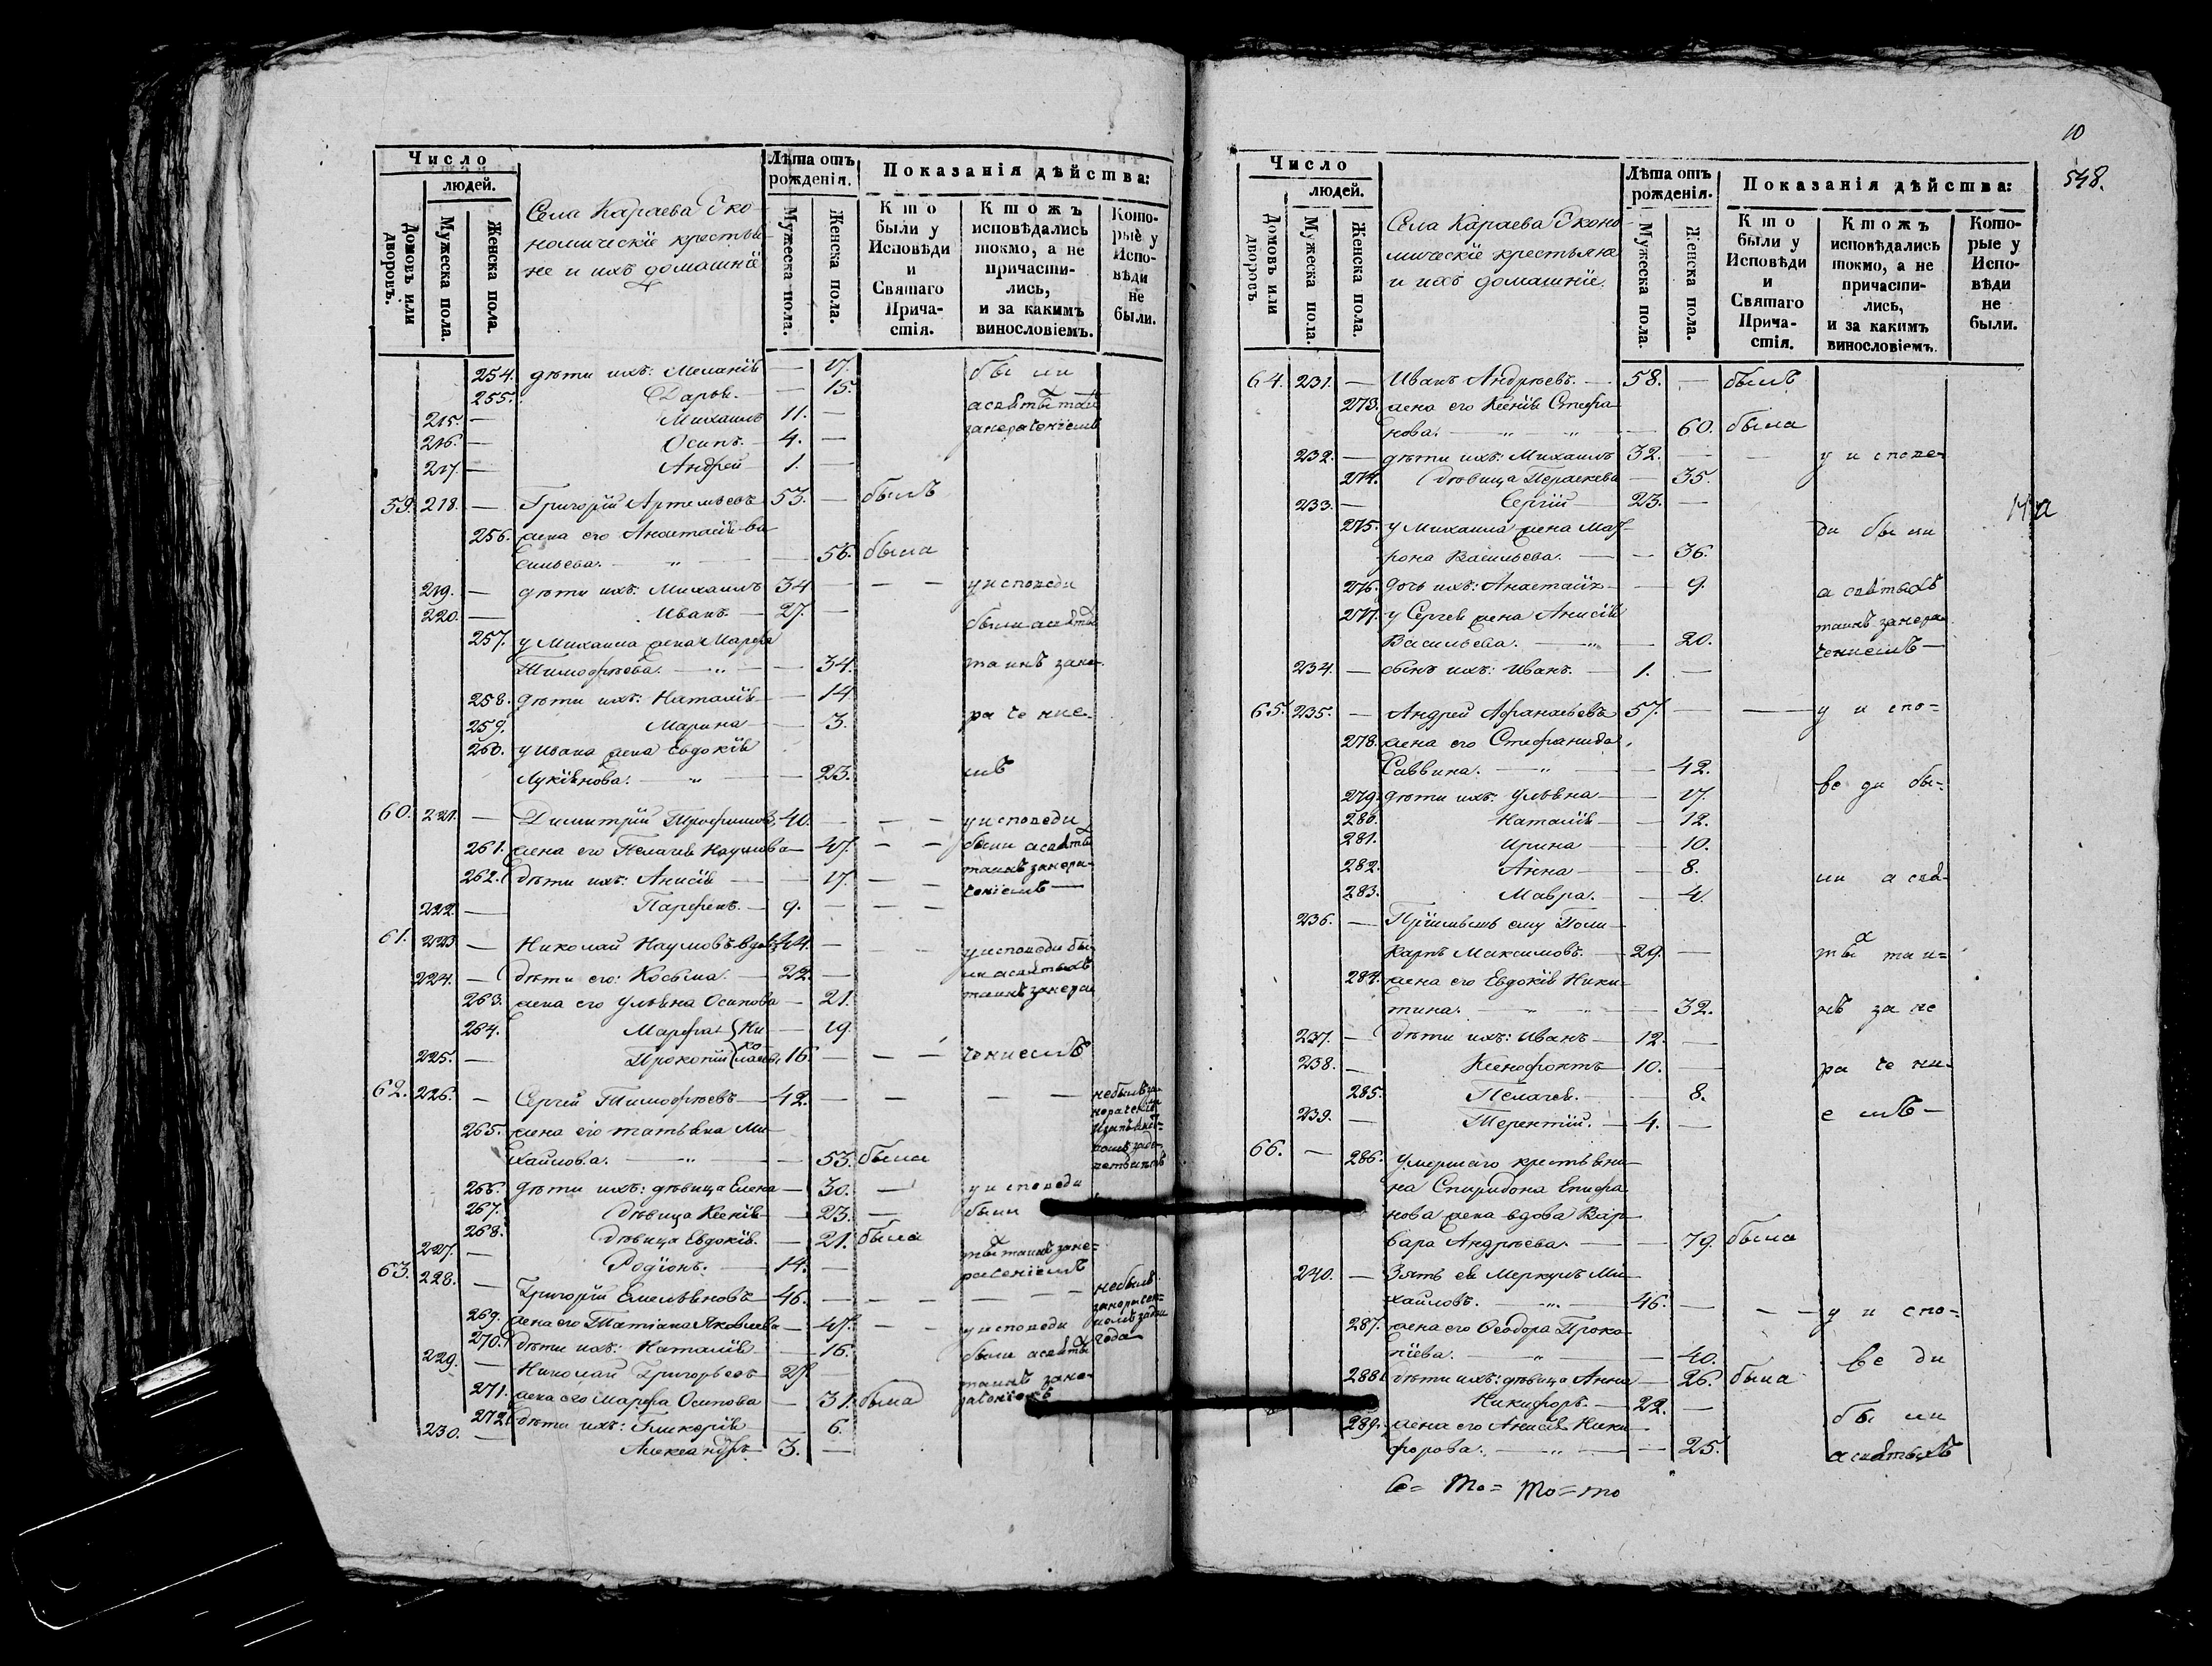 Число
людей.
Домовъ или дворовъ.
Мужеска пола.
Женска пола.
Села Караева Эко-
номическіе крестья-
не и ихъ домашніе
Лѣта отъ рожденія.
Мужеска пола.
Женска пола.
Показанія дѣйства:
Кто были у Исповѣди и Святаго Прича-стія.
Ктожъ исповѣдались токмо, а не причасти-лись, и за какимъ винословіемъ.
Кото-рые у Испо-вѣди не были.
254. дѣти ихъ: Меланія — 17. бы ли
255. Дарья. — 15.
215. — Михаилъ 11. — а святыхъ таинъ
216. — Осипъ. — 4. — занераченіемъ
217. — Андрей 1. —
59. 218. — Григорій Артемьевъ 53. — былъ
256. жена его Анастасія Ва-
сильева. — „ — 56. была
219. — дѣти ихъ: Михаилъ 34 — — — у исповеди
220. — Иванъ. — 27. — были а святы
257. у Михаила жена Марфа
Тимофѣева. — „ — 34. таинъ зане-
258. дѣти ихъ: Наталія — 14
259. Марина — 3. ра че ние-
260. у Ивана жена Евдокія
Лукіянова. — „ — 23. мъ
60. 221. — Димитрій Трофимовъ 40. — — — у исповеди
261. жена его Пелагея Наумова — 47. — — были а святы
262. дѣти ихъ: Анисія — 17. — — таинъ занера-
ченіемъ —
222. — Парфенъ. — 9. — — —
61. 223 — Николай Наумовъ вдовъ 44. — — у исповеди бы-
224. — дѣти его: Косьма. — 22. — ли а святыхъ
263. жена его Ульяна Осипова — 21. таинъ занера
264. Марфа Ни- — 19.
ко-
225. — Прокопій лаевы 16. — — — чениемъ
62. 226. — Сергей Тимофѣевъ — 42. — — — — небылъ за-
нераченіе
265. жена его татьяна Ми-
хайлова. — „ — 53. была
266. дѣти ихъ: дѣвица Елена — 30. — у исповеди
267. дѣвица Ксенія — 23. — были
268. дѣвица Евдокія. — 21. была
227. — Родіонъ. — 14. — таинъ зане-
раченіемъ
63. 228. — Григорій Емельяновъ 46. — — — — — небылъ
269. жена его Татіана Яковлева — 47. — — у исповеди
270. дѣти ихъ: Наталія — 16. были а святы года
229. — Николай Григорьевъ 27. — таинъ зане-
271. жена его Марфа Осипова — 31. была раченіемъ
272. дѣти ихъ: Гликерія 6.
230. — Александръ 3. —
10
548.
Число
людей.
Домовъ или дворовъ
Мужеска пола.
Женска пола.
Села Караева Эконо-
мическіе крестьяне
и ихъ домашніе.
Лѣта отъ рожденія.
Мужеска пола.
Женска пола.
Показанія дѣйства:
Кто были у Исповѣди и Святаго Прича-стія.
Ктожъ исповѣдались токмо, а не причасти-лись, и за какимъ винословіемъ.
Кото-рые у Испо-вѣди не были.
64. 231. — Иванъ Андреевъ. — 58. — былъ
273. жена его Ксенія Стефа-
нова. — „ „ — 60. была
232. — дѣти ихъ: Михаилъ 32. — — у и спове-
274. дѣвица Параскева — 35.
233. — Сергій — 23. —
275. у Михаила жена Мат-
рона Васильева. — — 36. ди бы ли
276. дочь ихъ: Анастасія — 9. а святыхъ
277. у Сергея жена Анисія таинъ занера-
Васильева. — „ — 20. чениемъ —
234. — сынъ ихъ: Иванъ. — 1. —
65. 235. — Андрей Афанасьевъ 57. — — у и спо=
278. жена его Стефанида
Саввина. — „ — 42. ве ди бы=
279. дѣти ихъ: Ульяна — 17.
280. Наталія — 12.
281. Ирина — 10.
282. Анна — 8. ли а свя-
283. Мавра. — 4.
236. — Пріемышъ ему Поли-
карпъ Максимовъ. — 29. — тыхъ таи=
284. жена его Евдокія Ники-
тина. — „ „ — 32. нъ за не
237. — дѣти ихъ: Иванъ — 12. —
238. — Ксенофонтъ 10. — ра че ни-
285. Пелагея. — 8.
239. — Терентій. — 4. — е мъ —
66. — 286. Умершаго крестьяни-
на Спиридона Епифа-
нова жена вдова Вар-
вара Андреева. — 79. была
240. — Зять ея Меркулъ Ми-
хайловъ. — „ — 46. — — у и спо=
287. жена его Феодора Проко-
піева. — „ — 40. ве ди
288. дѣти ихъ: дѣвица Анна — 26. была
Никифоръ. — 22. — бы ли
289. жена его Анисія Ники-
форова. — „ — 25. а святыхъ